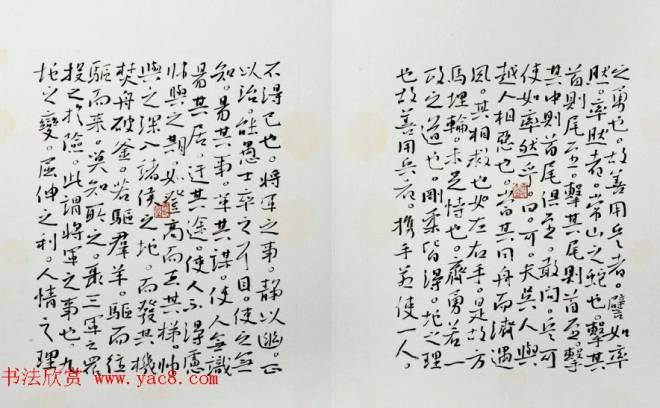 之勇也。故善用兵者。譬如率
然。率然者。常山之蛇也。擊其
首則尾至。擊其尾則首至。擊
其中則首尾俱至。敢問。兵可
使如率然乎。曰。可。夫吳人與
越人相惡也。當其同舟而濟遇
風。其相救也如左右手。是故方
馬埋輪。未足恃也。齊勇若一
政之道也。剛柔皆得。地之理
也。故善用兵者。攜手若使一人。
不得已也。將軍之事。靜以幽。正
以治。能愚士卒之耳目。使之無
知。易其事。革其謀。使人無識
易其居。迂其途。使人不得慮
帥與之期。如登高而去其梯。帥
與之深入諸侯之地。而發其機
焚舟破釜。若驅羣羊。驅而往
驅而來。莫知所之。聚三軍之眾
投之於險。此謂將軍之事也。九
地之變。屈伸之利。人情之理
书法欣赏 www.yac8.com